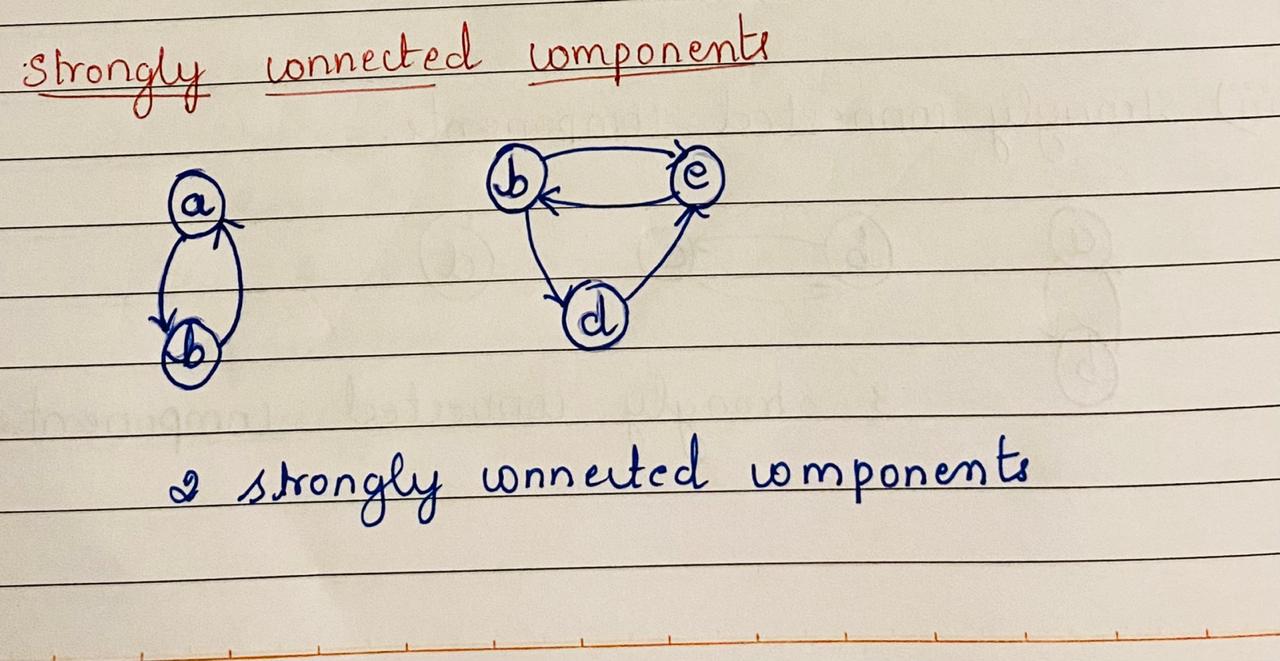 strongly connected components
a
b
b
e
d
2 strongly connected components